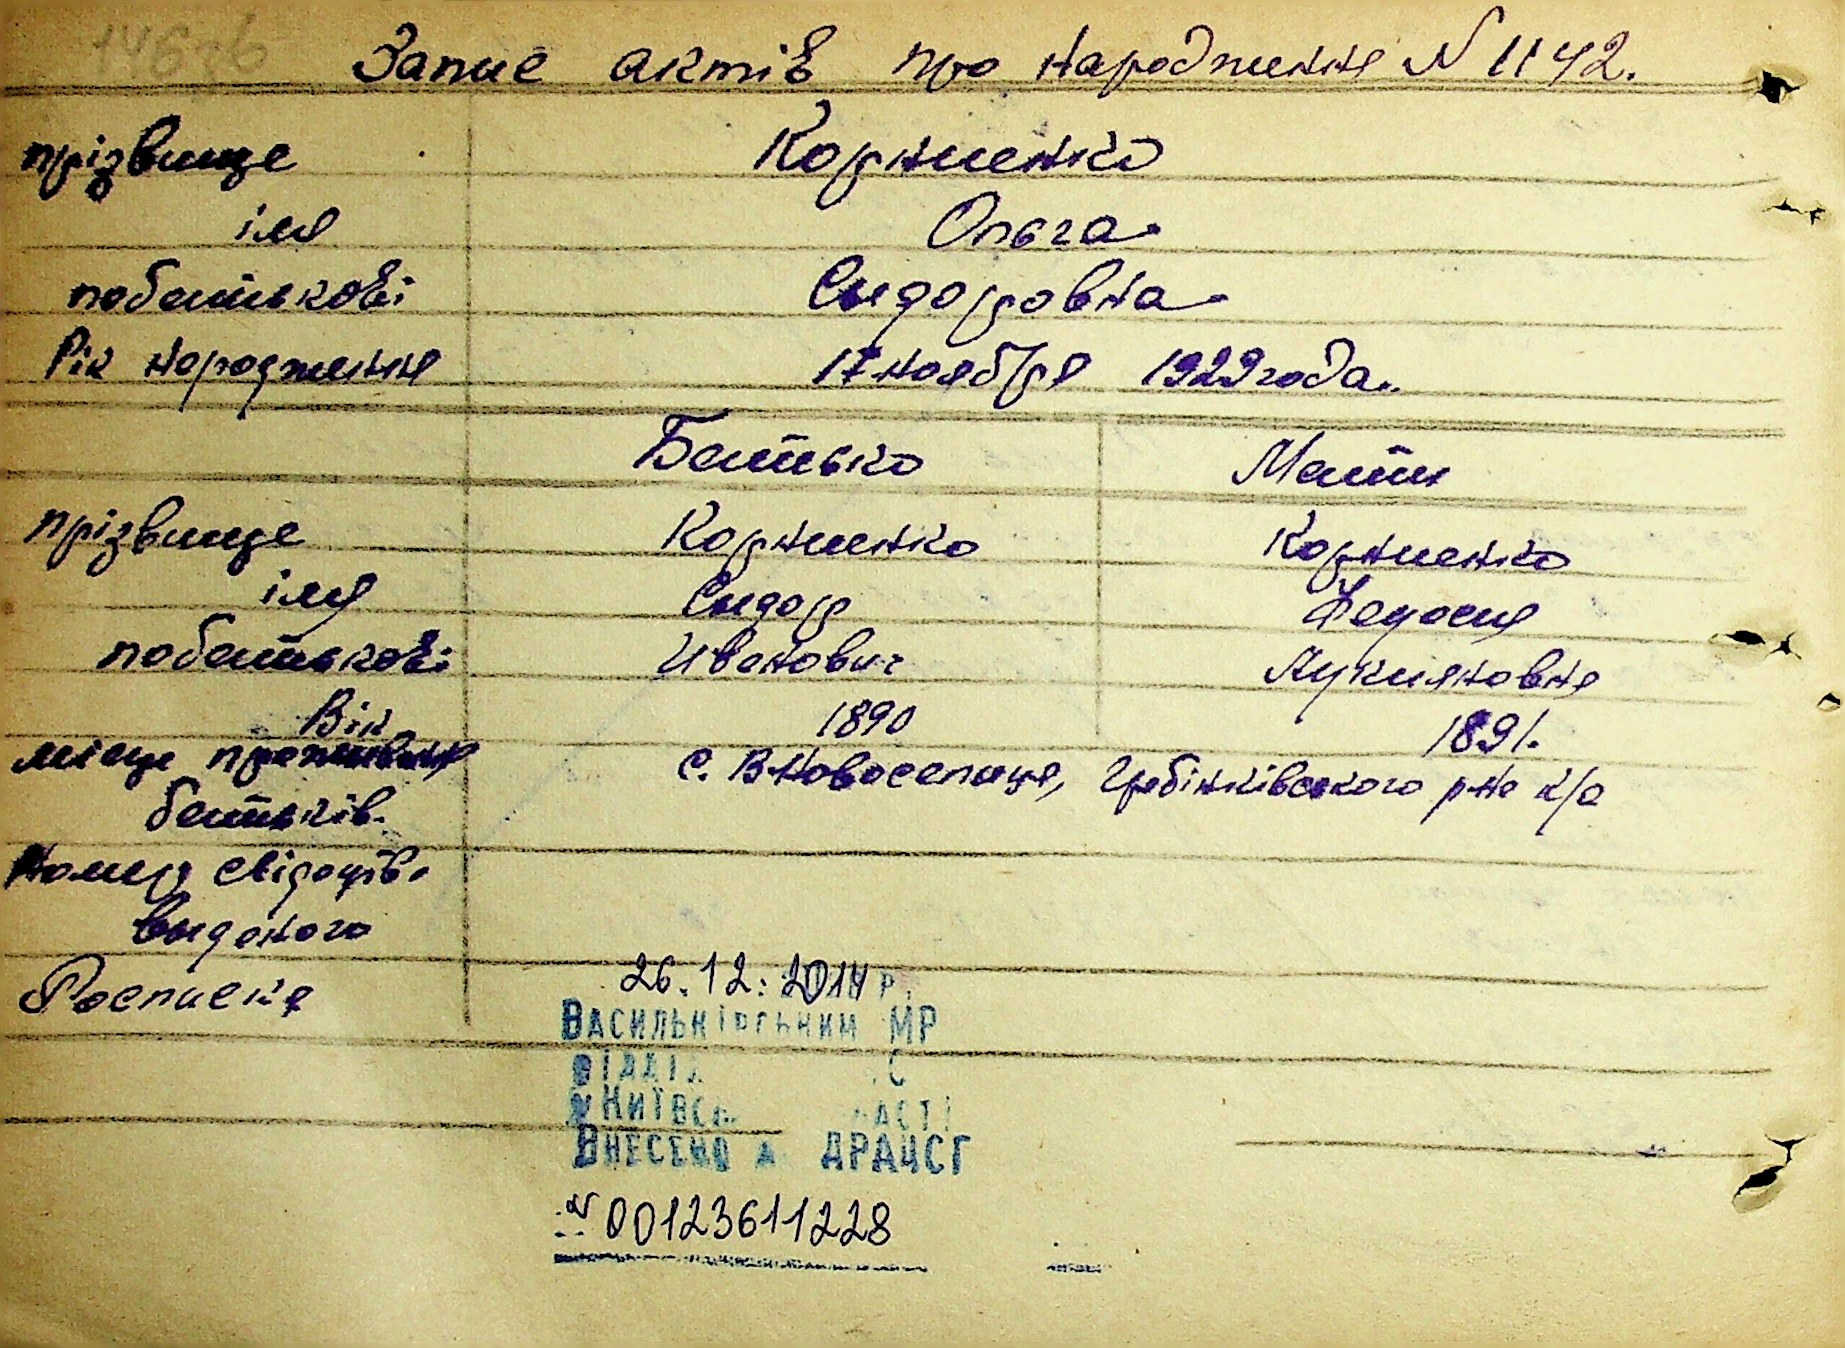 Запис актів про народження N 1142.
прізвище Корниенко
імя Ольга
побатькові Сидоровна
Рік народження 17 ноября 1929 года.
Батько Мати
прізвище Корниенко Корниенко
імя Сидор Федосия
побатькові Иванович Лукияновна
Вік 1890 1891.
місце проживання с. В-Новоселица, Гребінківського р-на к/о
батьків.
Номер свідоцтв.
выданого
Росписка
26.12.2014 р.
Васильківським МР
відділ С
Київс асті
Внесено д ДРАЦСГ
N 00123611228